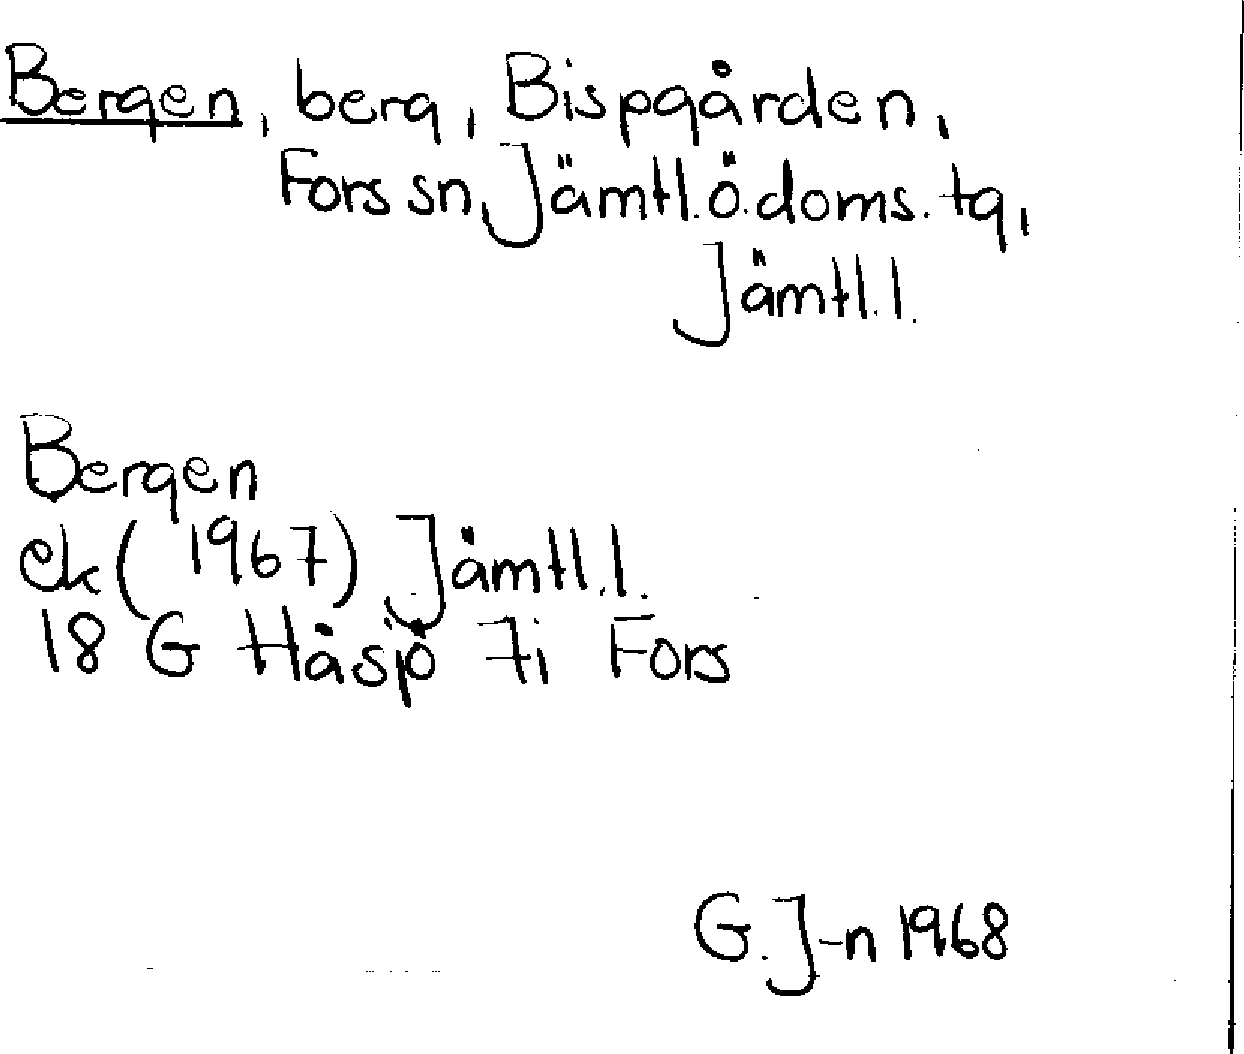 Bergen, berg, Bispgården,
Fors sn, Jämtl. ö. doms. tg,
Jämtl. l.
Bergen
ek (1967) Jämtl. l.
18 G Håsjö 7i Fors
G. J-n 1968